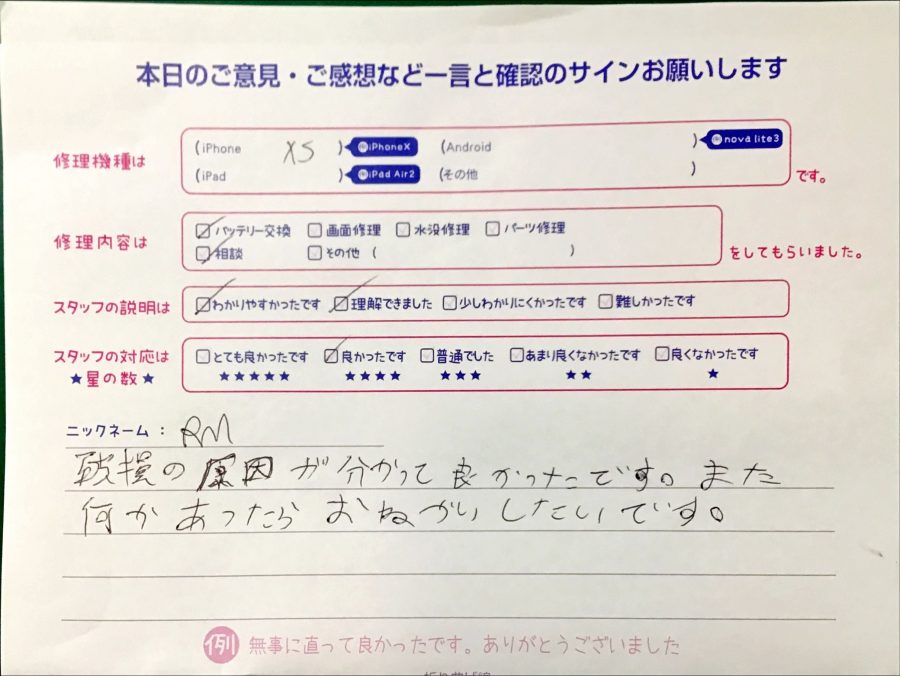 本日のご意見・ご感想など一言と確認のサインお願いします
修理機種は
(iPhone XS ) iPhoneX (Android ) nova lite3
(iPad ) iPad Air2 (その他 ) です。
修理内容は
バッテリー交換 画面修理 水没修理 パーツ修理
相談 その他 ( ) をしてもらいました。
スタッフの説明は わかりやすかったです 理解できました 少しわかりにくかったです 難しかったです
スタッフの対応は とても良かったです 良かったです 普通でした あまり良くなかったです 良くなかったです
★星の数★ ★★★★★ ★★★★ ★★★ ★★ ★
ニックネーム : RM
破損の原因が分かって良かったです。また
何かあったらおねがいしたいです。
例 無事に直って良かったです。ありがとうございました